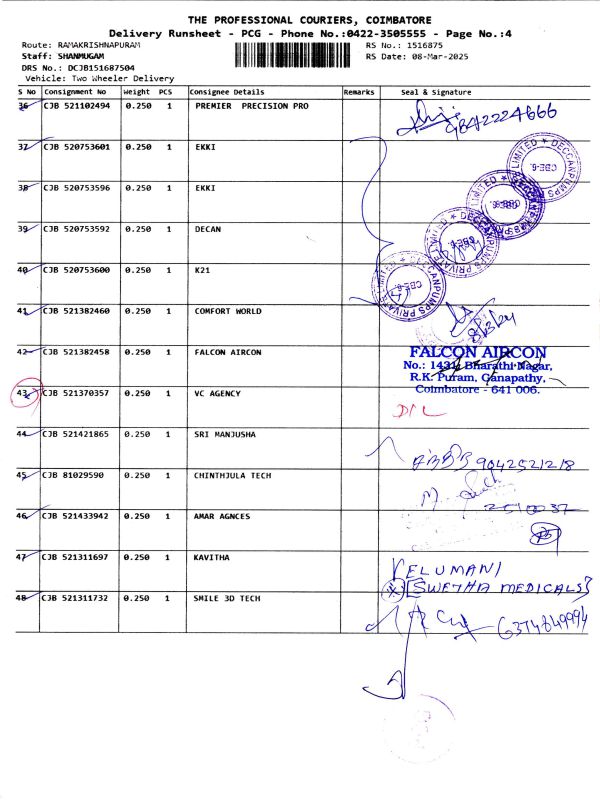 THE PROFESSIONAL COURIERS, COIMBATORE
Delivery Runsheet - PCG - Phone No.:0422-3505555 - Page No.:4
Route: RAMAKRISHNAPURAM RS No.: 1516875
Staff: SHANMUGAM RS Date: 08-Mar-2025
DRS No.: DCJB151687504
Vehicle: Two Wheeler Delivery
S No Consignment No Weight PCS Consignee Details Remarks Seal & Signature
36 CJB 521102494 0.250 1 PREMIER PRECISION PRO 9842224666
37 CJB 520753601 0.250 1 EKKI
DECCANPUMPS PRIVATE LIMITED CBE-6.
38 CJB 520753596 0.250 1 EKKI
DECCANPUMPS PRIVATE LIMITED CBE-6.
39 CJB 520753592 0.250 1 DECAN
DECCANPUMPS PRIVATE LIMITED CBE-6.
40 CJB 520753600 0.250 1 K21
DECCANPUMPS PRIVATE LIMITED CBE-6.
41 CJB 521382460 0.250 1 COMFORT WORLD
42 CJB 521382458 0.250 1 FALCON AIRCON
FALCON AIRCON
No.: 1431, Bharathi Nagar,
R.K. Puram, Ganapathy,
Coimbatore - 641 006.
43 CJB 521370357 0.250 1 VC AGENCY D/L
44 CJB 521421865 0.250 1 SRI MANJUSHA
9042521218
45 CJB 81029590 0.250 1 CHINTHJULA TECH
46 CJB 521433942 0.250 1 AMAR AGNCES
47 CJB 521311697 0.250 1 KAVITHA
VELUMANI
[SWETHA MEDICALS]
48 CJB 521311732 0.250 1 SMILE 3D TECH
6374849994